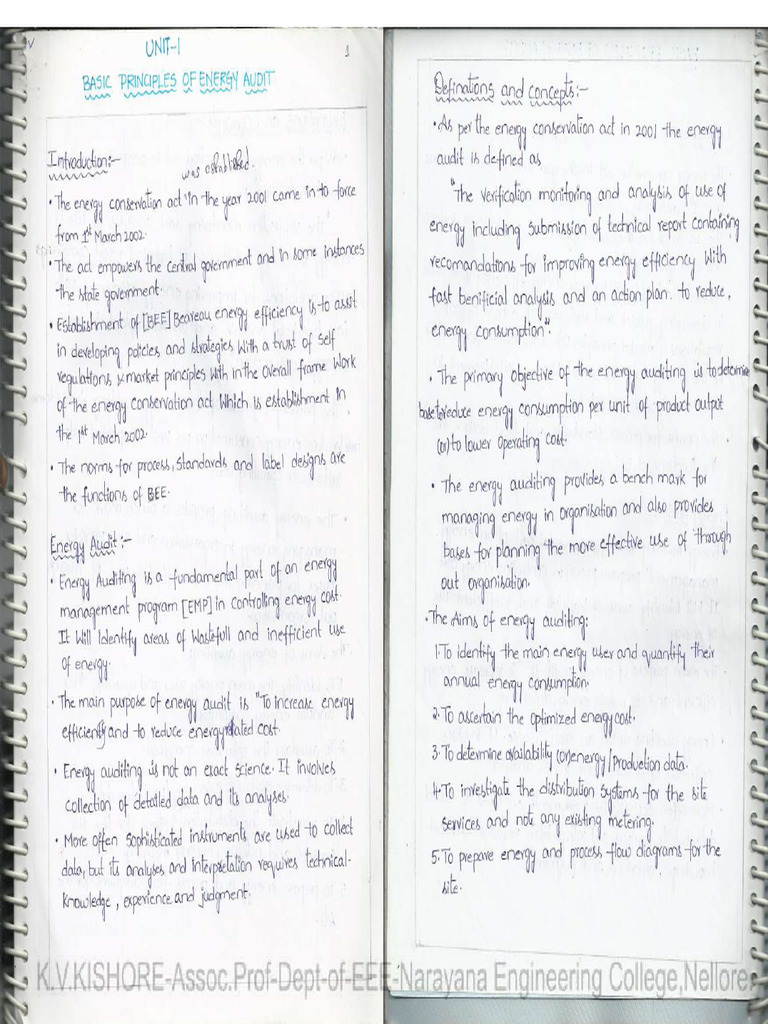 UNIT-1
1
BASIC PRINCIPLES OF ENERGY AUDIT
Introduction:-
was established.
• The energy conservation act in the year 2001 came in to force
from 1st March 2002.
• The act empowers the central government and in some instances
the state government.
• Establishment of [BEE] Beareau energy efficiency is to assit
in developing policies and strategies with a trust of self
regulations & market principles with in the overall frame work
of the energy conservation act which is establishment in
the 1st March 2002.
• The norms for process, standards and label designs are
the functions of BEE.
Energy Audit:-
• Energy Auditing is a fundamental part of an energy
management program [EMP] in controlling energy cost.
It will identify areas of wastefull and inefficient use
of energy.
• The main purpose of energy audit is "To increase energy
efficiently and to reduce energy related cost.
• Energy auditing is not an exact science. It involves
collection of detailed data and its analyses.
• More often sophisticated instruments are used to collect
data, but its analyses and interpretation requires technical-
knowledge, experience and judgment.
Definations and concepts:-
• As per the energy conservation act in 2001 the energy
audit is defined as
"The verification monitoring and analysis of use of
energy including submission of technical report containing
recomandations for improving energy efficiency with
fast benificial analysis and an action plan. to reduce,
energy consumption".
• The primary objective of the energy auditing is to determine
to reduce energy consumption per unit of product output
(or) to lower operating cost.
• The energy auditing provides a bench mark for
managing energy in organisation and also provides
bases for planning the more effective use of through
out organisation.
• The Aims of energy auditing:
1. To identify the main energy user and quantify their
annual energy consumption.
2. To ascertain the optimized energy cost.
3. To determine availability (or) energy/production data.
4. To investigate the distribution systems for the site
services and note any existing metering.
5. To prepare energy and process flow diagrams for the
site.
K.V.KISHORE-Assoc.Prof-Dept-of-EEE-Narayana Engineering College,Nellore